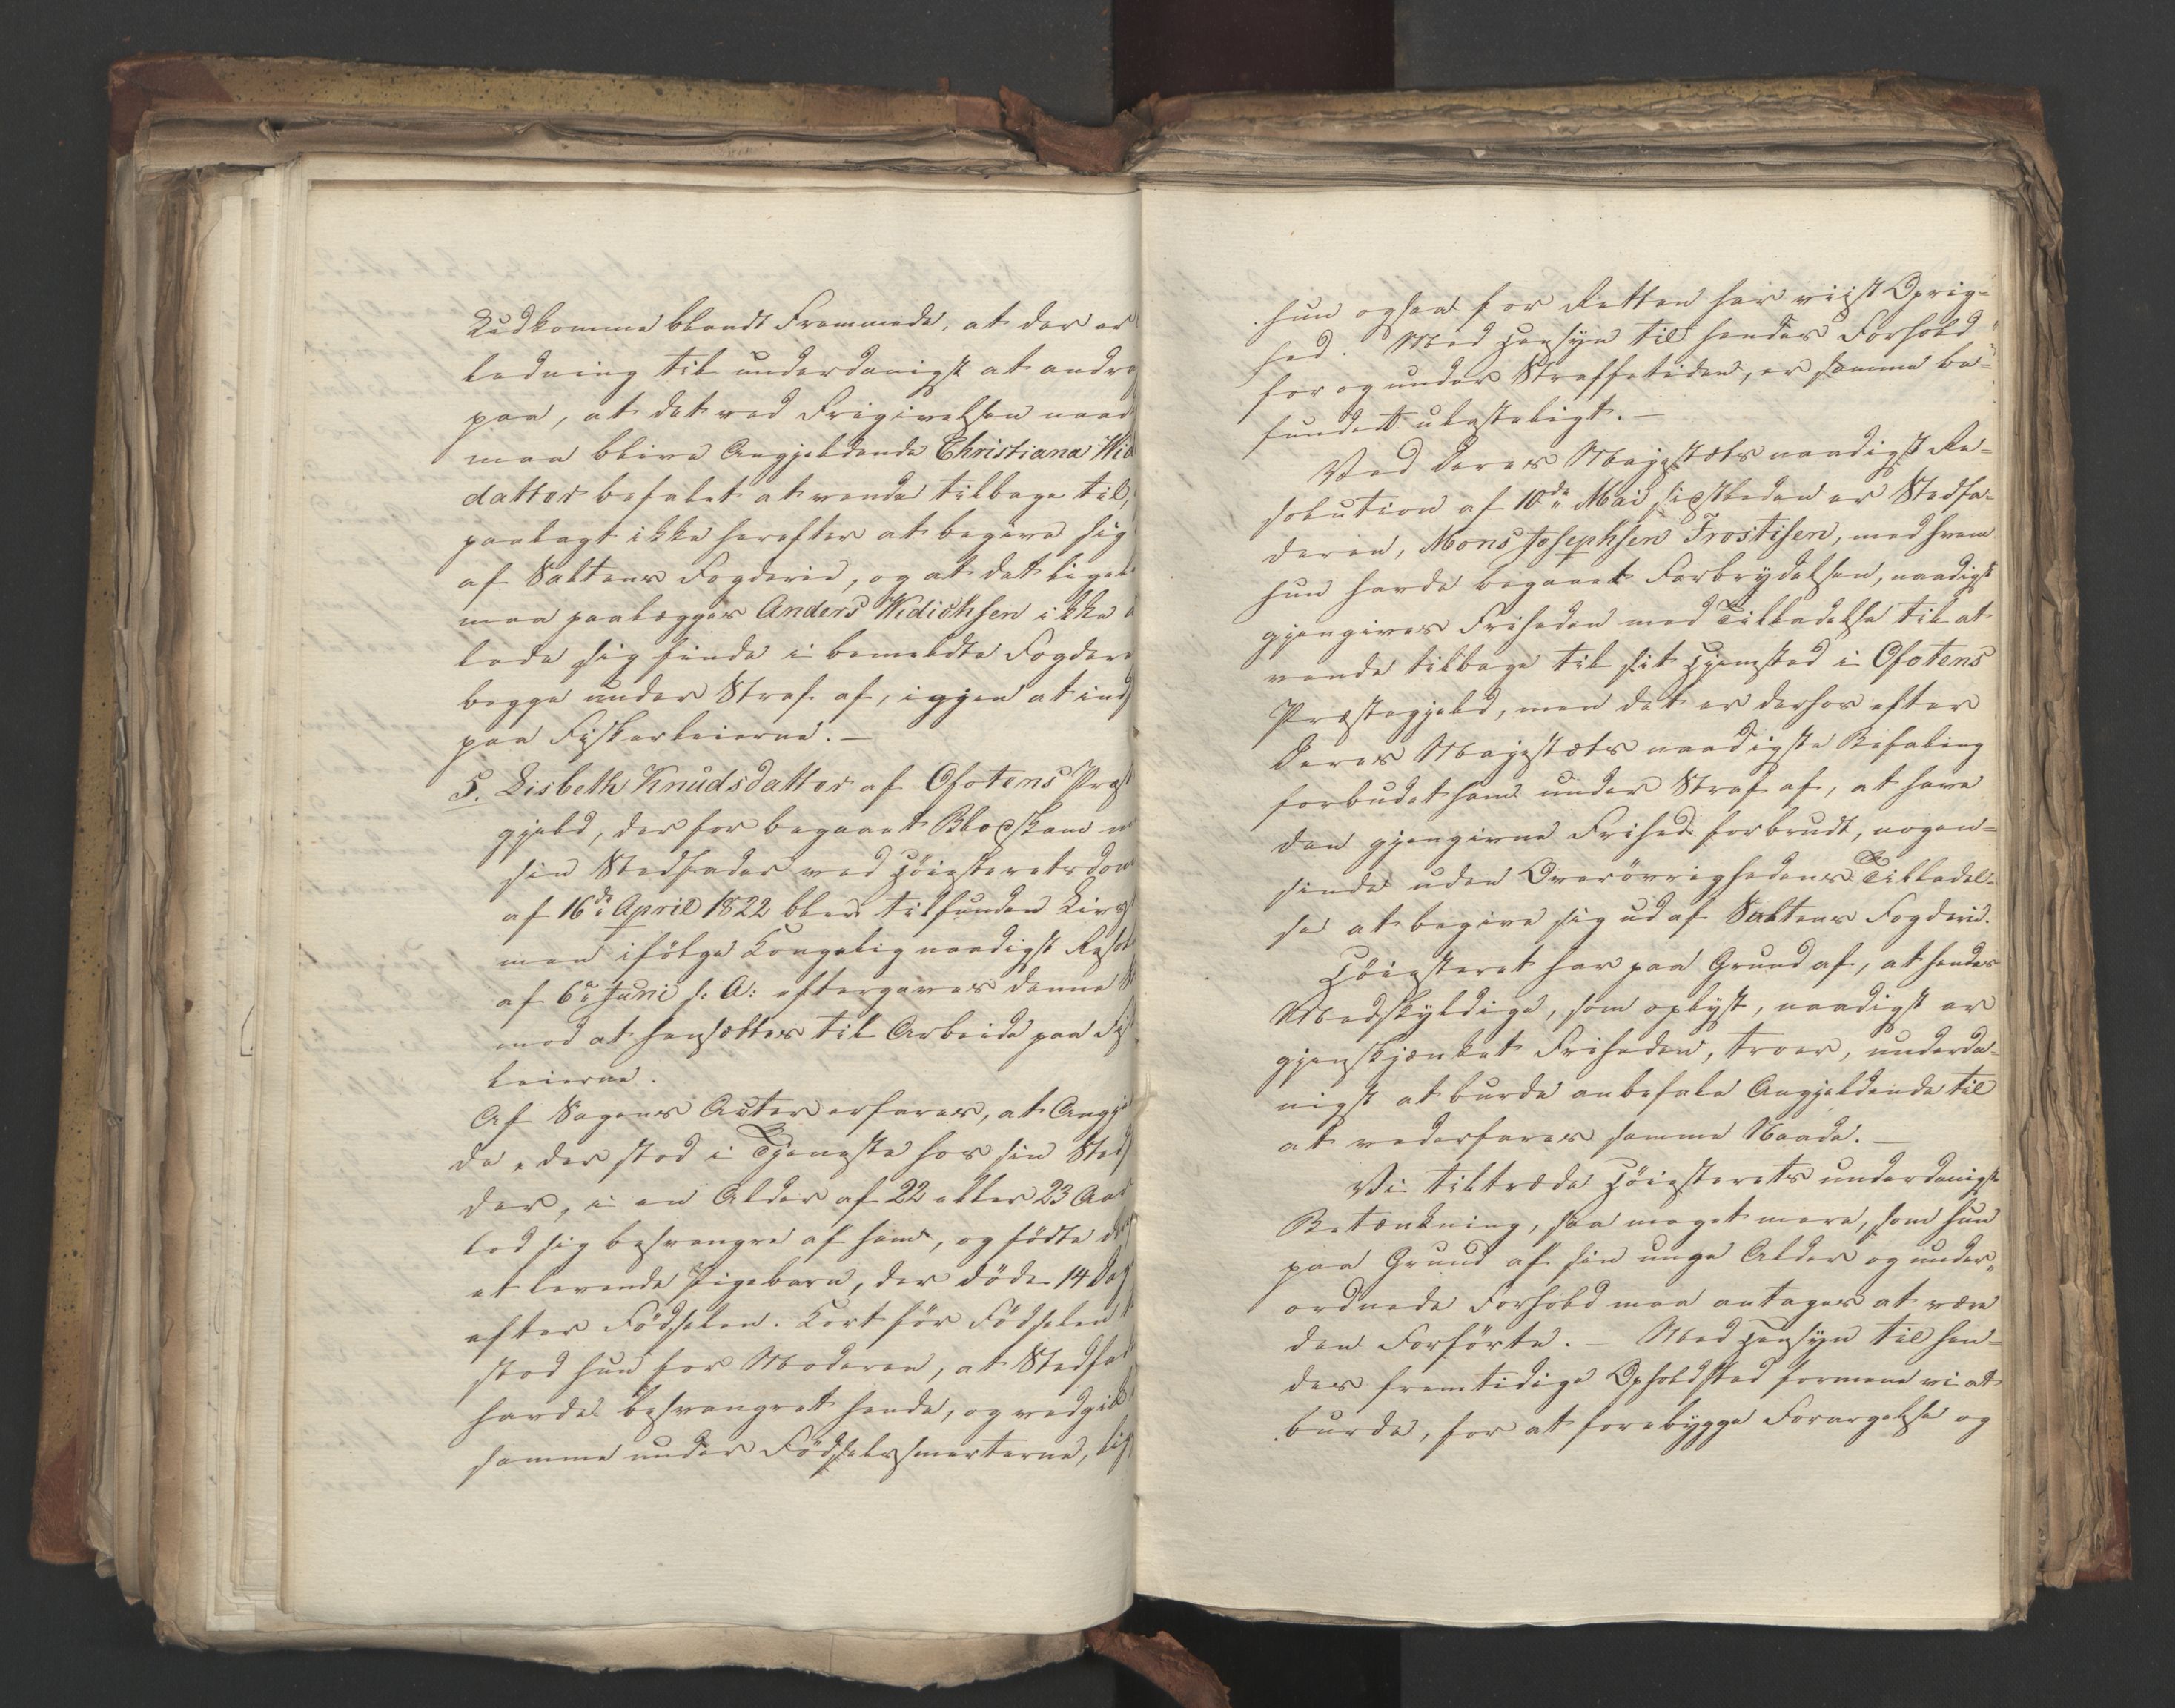 Udkomme blandt Fremmede, at der er
ledning til underdanigst at andra
paa, at det ved Frigivelsen naad
maa blive Angjeldende Christiana Wid
datter befalet at vende tilbage til,
paalagt ikke herefter at begive sig
af Saltens Fogderie, og at det ligel
maa paalægges Anders Widichsen ikke
lade sig finde i bemeldte Fogder
begge under Straf af, igjen at ind
paa Fiskerleierne. —
5. Lisbeth Knudsdatter af Ofotens Præst
gjeld, der for begaaet Blodskam m
sin Stedfader ved Höiesteretsdom
af 16de April 1822 blev tilfunden Livs
men ifölge Kongelig naadigst Resol
af 6e Juni s. A: eftergaves denne
mod at hensættes til Arbeide paa Fis
leierne.
Af Sagens Acter erfares, at Angje
de, der stod i Tjeneste hos sin Sted
der, i en Alder af 22 eller 23 Aar
lod sig besvangre af ham, og födte
et levende Pigebarn, der döde 14 Dag
efter Födselen. Kort för Födselen
stod hun for Moderen, at Stedfad
havde besvangret hende, og vedgik
samme under Födselssmerterne, lig
hun ogsaa for Retten har viist Oprig-
hed. Med Hensyn til hendes Forhold
for og under Straffetiden, er samme be-
fundet ulasteligt. —
Ved Deres Majestæts naadigst Re-
solution af 10de Mai sidstleden er Stedfa-
deren, Mons Josephsen Trostisen, med hvem
hun havde begaaet Forbrydelsen, naadigst
gjengiven Friheden med Tilladelse til at
vende tilbage til sit Hjemsted i Ofotens
Præstegjeld, men det er derhos efter
Deres Majestæts naadigste Befaling
forbudet ham under Straf af, at have
den gjengivne Frihed forbrudt, nogen-
sinde uden Overövrighedens Tilladel-
se at begive sig ud af Saltens Fogderie.
Höiesteret har paa Grund af, at hendes
Medskyldige, som oplyst, naadigst er
gjenskjænket Friheden, troer, underda-
nigst at burde anbefale Angjeldende til
at vederfares samme Naade. —
Vi tiltræde Höiesterets underdanigste
Betænkning, saa meget mere, som hun
paa Grund af sin unge Alder og under-
ordnede Forhold maa antages at være
den Forförte. — Med Hensyn til hen-
des fremtidige Opholdsted formene vi at
burde, for at forebygge Forargelse og